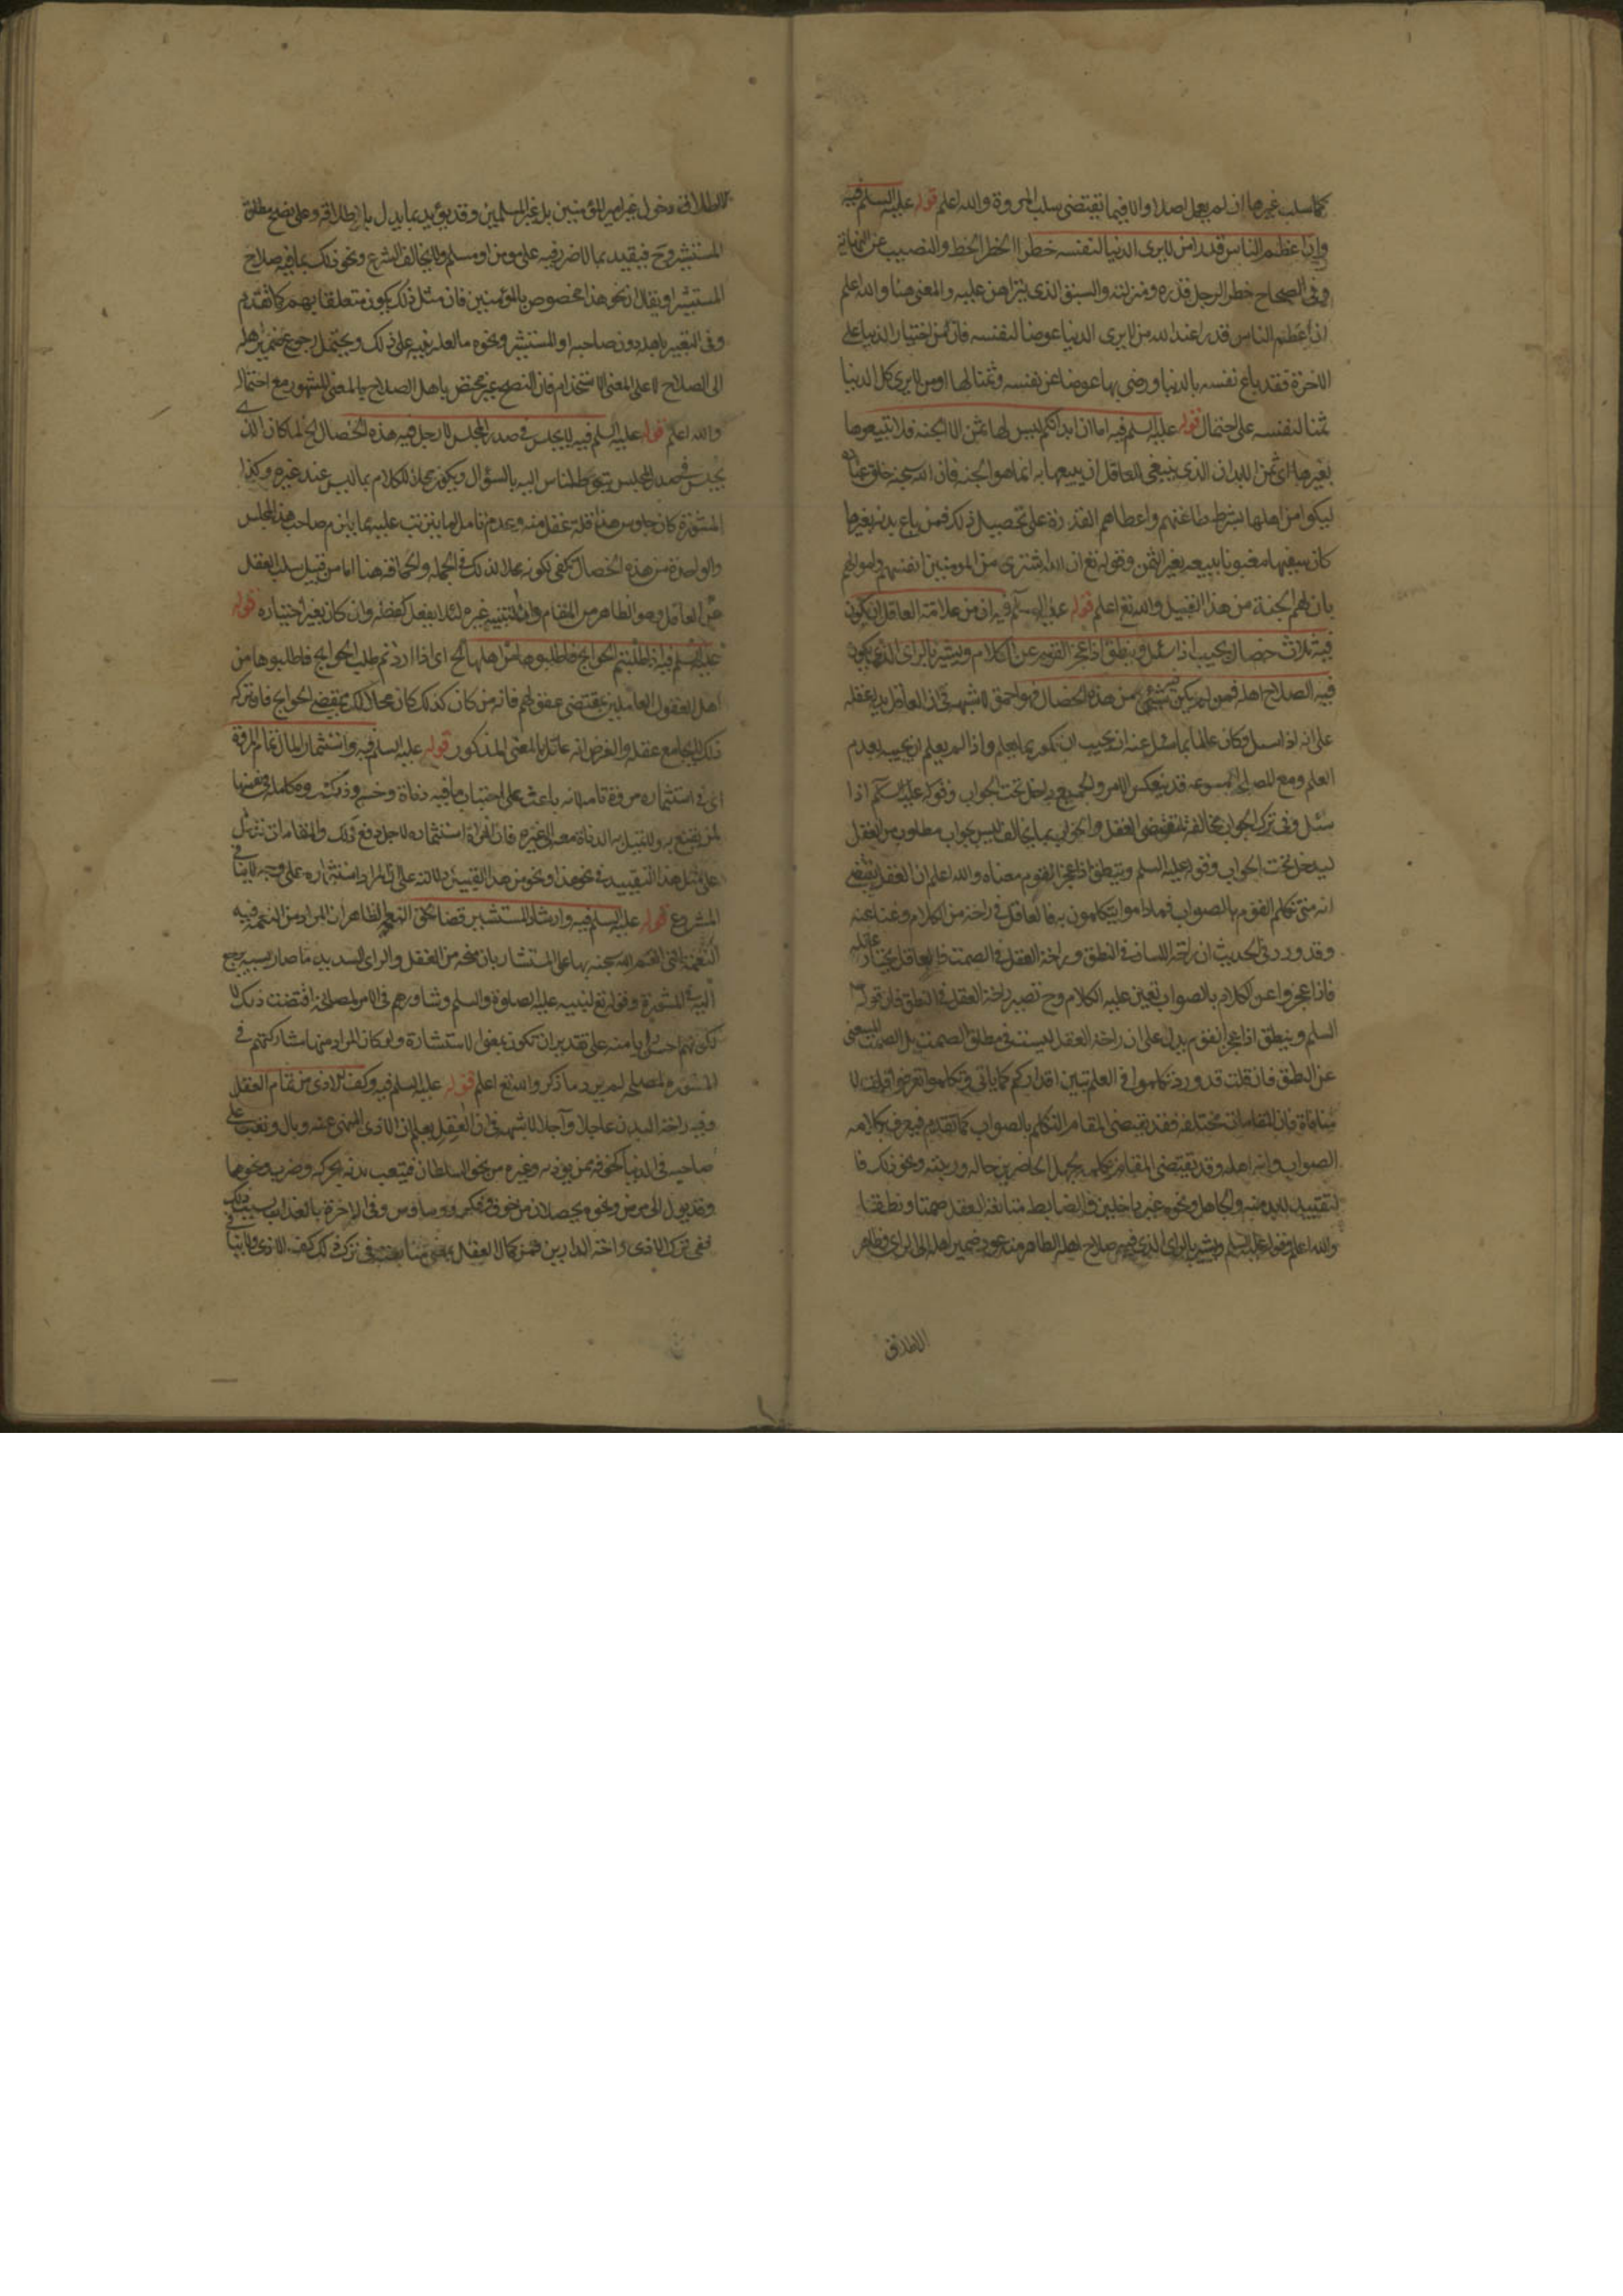 كما سلب غيرها ان لم يعمل اصلا والا فيما تقتضي سلب المروة والله اعلم قوله عليه السلم فيه
وان اعظم الناس قدرا من لا يرى الدنيا لنفسه خطرا الخطر الحظ والنصيب عن النهاية
وفي الصحاح خطر الرجل قدره ومنزلته والسبق الذي يتراهن عليه والمعنى هنا والله اعلم
ان اعظم الناس قدرا عند الله من لا يرى الدنيا عوضا لنفسه فان من اختيار الدنيا على
الاخرة فقد باع نفسه بالدنيا ورضي بها عوضا عن نفسه وثمنا لها او من لا يرى كل الدنيا
ثمنا لنفسه على احتمال قوله عليه السلم فيه اما ان ابدانكم ليس لها ثمن الا الجنة فلا تبيعوها
بغيرها اي ثمن الابدان الذي ينبغي للعاقل ان يبيعها به انما هو الجنة فان الله سبحنه خلق عباده
ليكونوا من اهلها بشرط طاعتهم واعطاهم القدرة على تحصيل ذلك فمن باع بدنه بغيرها
كان سفيها مغبونا ببيعه بغير الثمن وقوله تع ان الله اشترى من المومنين انفسهم واموالهم
بان لهم الجنة من هذا القبيل والله تع اعلم قوله عليه السلم فيه ان من علامة العاقل ان يكون
فيه ثلاث خصال يجيب اذا سئل وينطق اذا عجز القوم عن الكلام ويشير بالراي الذي يكون
فيه الصلاح اهله فمن لم يكن فيه شيء من هذه الخصال فهو احمق لا شبهة في ان العاقل يدله عقله
على انه اذا سئل وكان عالما بما سئل عنه ان يجيب ان كان بما يعلم واذا لم يعلم ان يجيب بعدم
العلم ومع المصلحة المسوغه قد ينعكس الامر والجميع داخل تحت الجواب وقوله عليه السلم اذا
سئل وفي ترك الجواب مخالفة لمقتضى العقل والجواب بما يخالف ليس جواب مطلوب من العقل
ليدخل تحت الجواب وقوله عليه السلم وينطق اذا عجز القوم معناه والله اعلم ان العقل يقتضي
انه متى تكلم القوم بالصواب فما داموا يتكلمون به فالعاقل في راحة من الكلام وغنا عنه
وقد ورد في الحديث ان راحة اللسان في النطق وراحة العقل في الصمت فالعاقل يختار راحة عقله
فاذا عجزوا عن الكلام بالصواب تعين عليه الكلام وح تصير راحة العقل في النطق فان قوله عليه
السلم وينطق اذا عجز القوم يدل على ان راحة العقل ليست في مطلق الصمت بل الصمت
عن النطق فان قلت قد ورد تكلموا في العلم تبين اقداركم كما ياتي وتكلموا تعرفوا قلت لا
منافاة فان المقامات مختلفه فقد يقتضي المقام التكلم بالصواب كما تقدم فيعرف بكلامه
الصواب وانه اهله وقد يقتضي المقام تكلمه بجهل الحاضرين حاله ورتبته ونحو ذلك فا
لتقييد لابد منه والجاهل ونحوه غير داخلين فالضابط متابعة العقل صمتا ونطقا
والله اعلم وقوله عليه السلم ويشير بالراي الذي فيه صلاح اهله الظاهر منه عود ضمير اهله الى الراي وظاهر
الاطلاق
الاطلاق دخول غير المؤمنين بل غير المسلمين وقد يؤيد بما يدل باطلاقه وعلى نصح مطلق
المستشير وح فيقيد بما لا ضرر فيه على مومن او مسلم ولا يخالف الشرع ونحو ذلك بما فيه صلاح
المستشير او يقال ان نحو هذا مخصوص بالمؤمنين فان مثل ذلك يكون متعلقا بهم كما تقدم
وفي التعبير باهله دون صاحبه او المستشير ونحوه ما لعله ينبه على ذلك ويحتمل رجوع ضمير اهله
الى الصلاح لا على المعنى الاستخدام فان النصح غير مختص باهل الصلاح بالمعنى المشهور مع احتماله
والله اعلم قوله عليه السلم فيه لا يجلس في صدر المجلس الا رجل فيه هذه الخصال الخ لما كان الذي
يجلس في صدر المجلس يتوجه الناس اليه بالسؤال ويكون محلا للكلام بما ليس عند غيره وكذا
المشورة كان جلوس هذا قلة عقل منه وعدم تامل لما يترتب عليه مما يلزم صاحب هذا المجلس
والواحدة من هذه الخصال تكفي لكونه محلا لذلك في الجملة والحماقة هنا اما من قبيل سلب العقل
عن العاقل وهو الظاهر من المقام واما لتنبيه غيره لئلا يفعل كفعله وان كان بغير اختياره قوله
عليه السلم فيه اذا طلبتم الحوايج فاطلبوها من اهلها الخ اي اذا اردتم طلب الحوايج فاطلبوها من
اهل العقول العاملين بمقتضى عقولهم فانه من كان كذلك كان محلا لان يقضي الحوايج فان تركه
ذلك لا يجامع عقله والغرض انه عاقل بالمعنى المذكور قوله عليه السلم فيه واستثمار المال تمام المروة
اي في استثماره مروة تامة لانه باعث على اجتناب ما فيه دناة وخسة
لمن يقنع به والقليل لا دناة معه الى غيره فان المراة استثماره لاجل دفع ذلك والمقامات تنزيل
على مثل هذا التقييد في نحو هذا ونحو من هذا القبيل دلالته على ان المراد استثماره على وجه لا ينافي
المشروع قوله عليه السلم فيه وارشاد المستشير قضاء لحق النعمة الظاهر ان المراد من النعمة فيه
النعمة التي انعم الله سبحنه بها على المستشار بان منحه من العقل والراي السديد ما صار بسببه يرجع
اليه في المشورة وقوله تع لنبيه عليه الصلوة والسلم وشاورهم في الامر لمصالح اقتضت ذلك لا
لكونهم احسن رايا منه على تقدير ان تكون بمعنى الاستشارة ولو كان المراد منها مشاركتهم في
المشورة لمصلحة لم يرد ما ذكر والله تع اعلم قوله عليه السلم فيه وكف الاذى من تمام العقل
وفيه راحة البدن عاجلا وآجلا لا شبهة في ان العقل يعلم ان الاذى المنهي عنه وبال وتعب على
صاحبه في الدنيا لخوفه ممن يؤذيه وغيره من نحو السلطان فيتعب بدنه بحركة وضرب ونحوهما
وقد يؤول الى مرض ونحوه يحصلان من خوف وفكر ووساوس وفي الاخرة بالعذاب بسبب ذلك
ففي ترك الاذى راحة الدارين فمن كمال العقل متابعته في ترك ذلك كف الاذى ولا ينافي